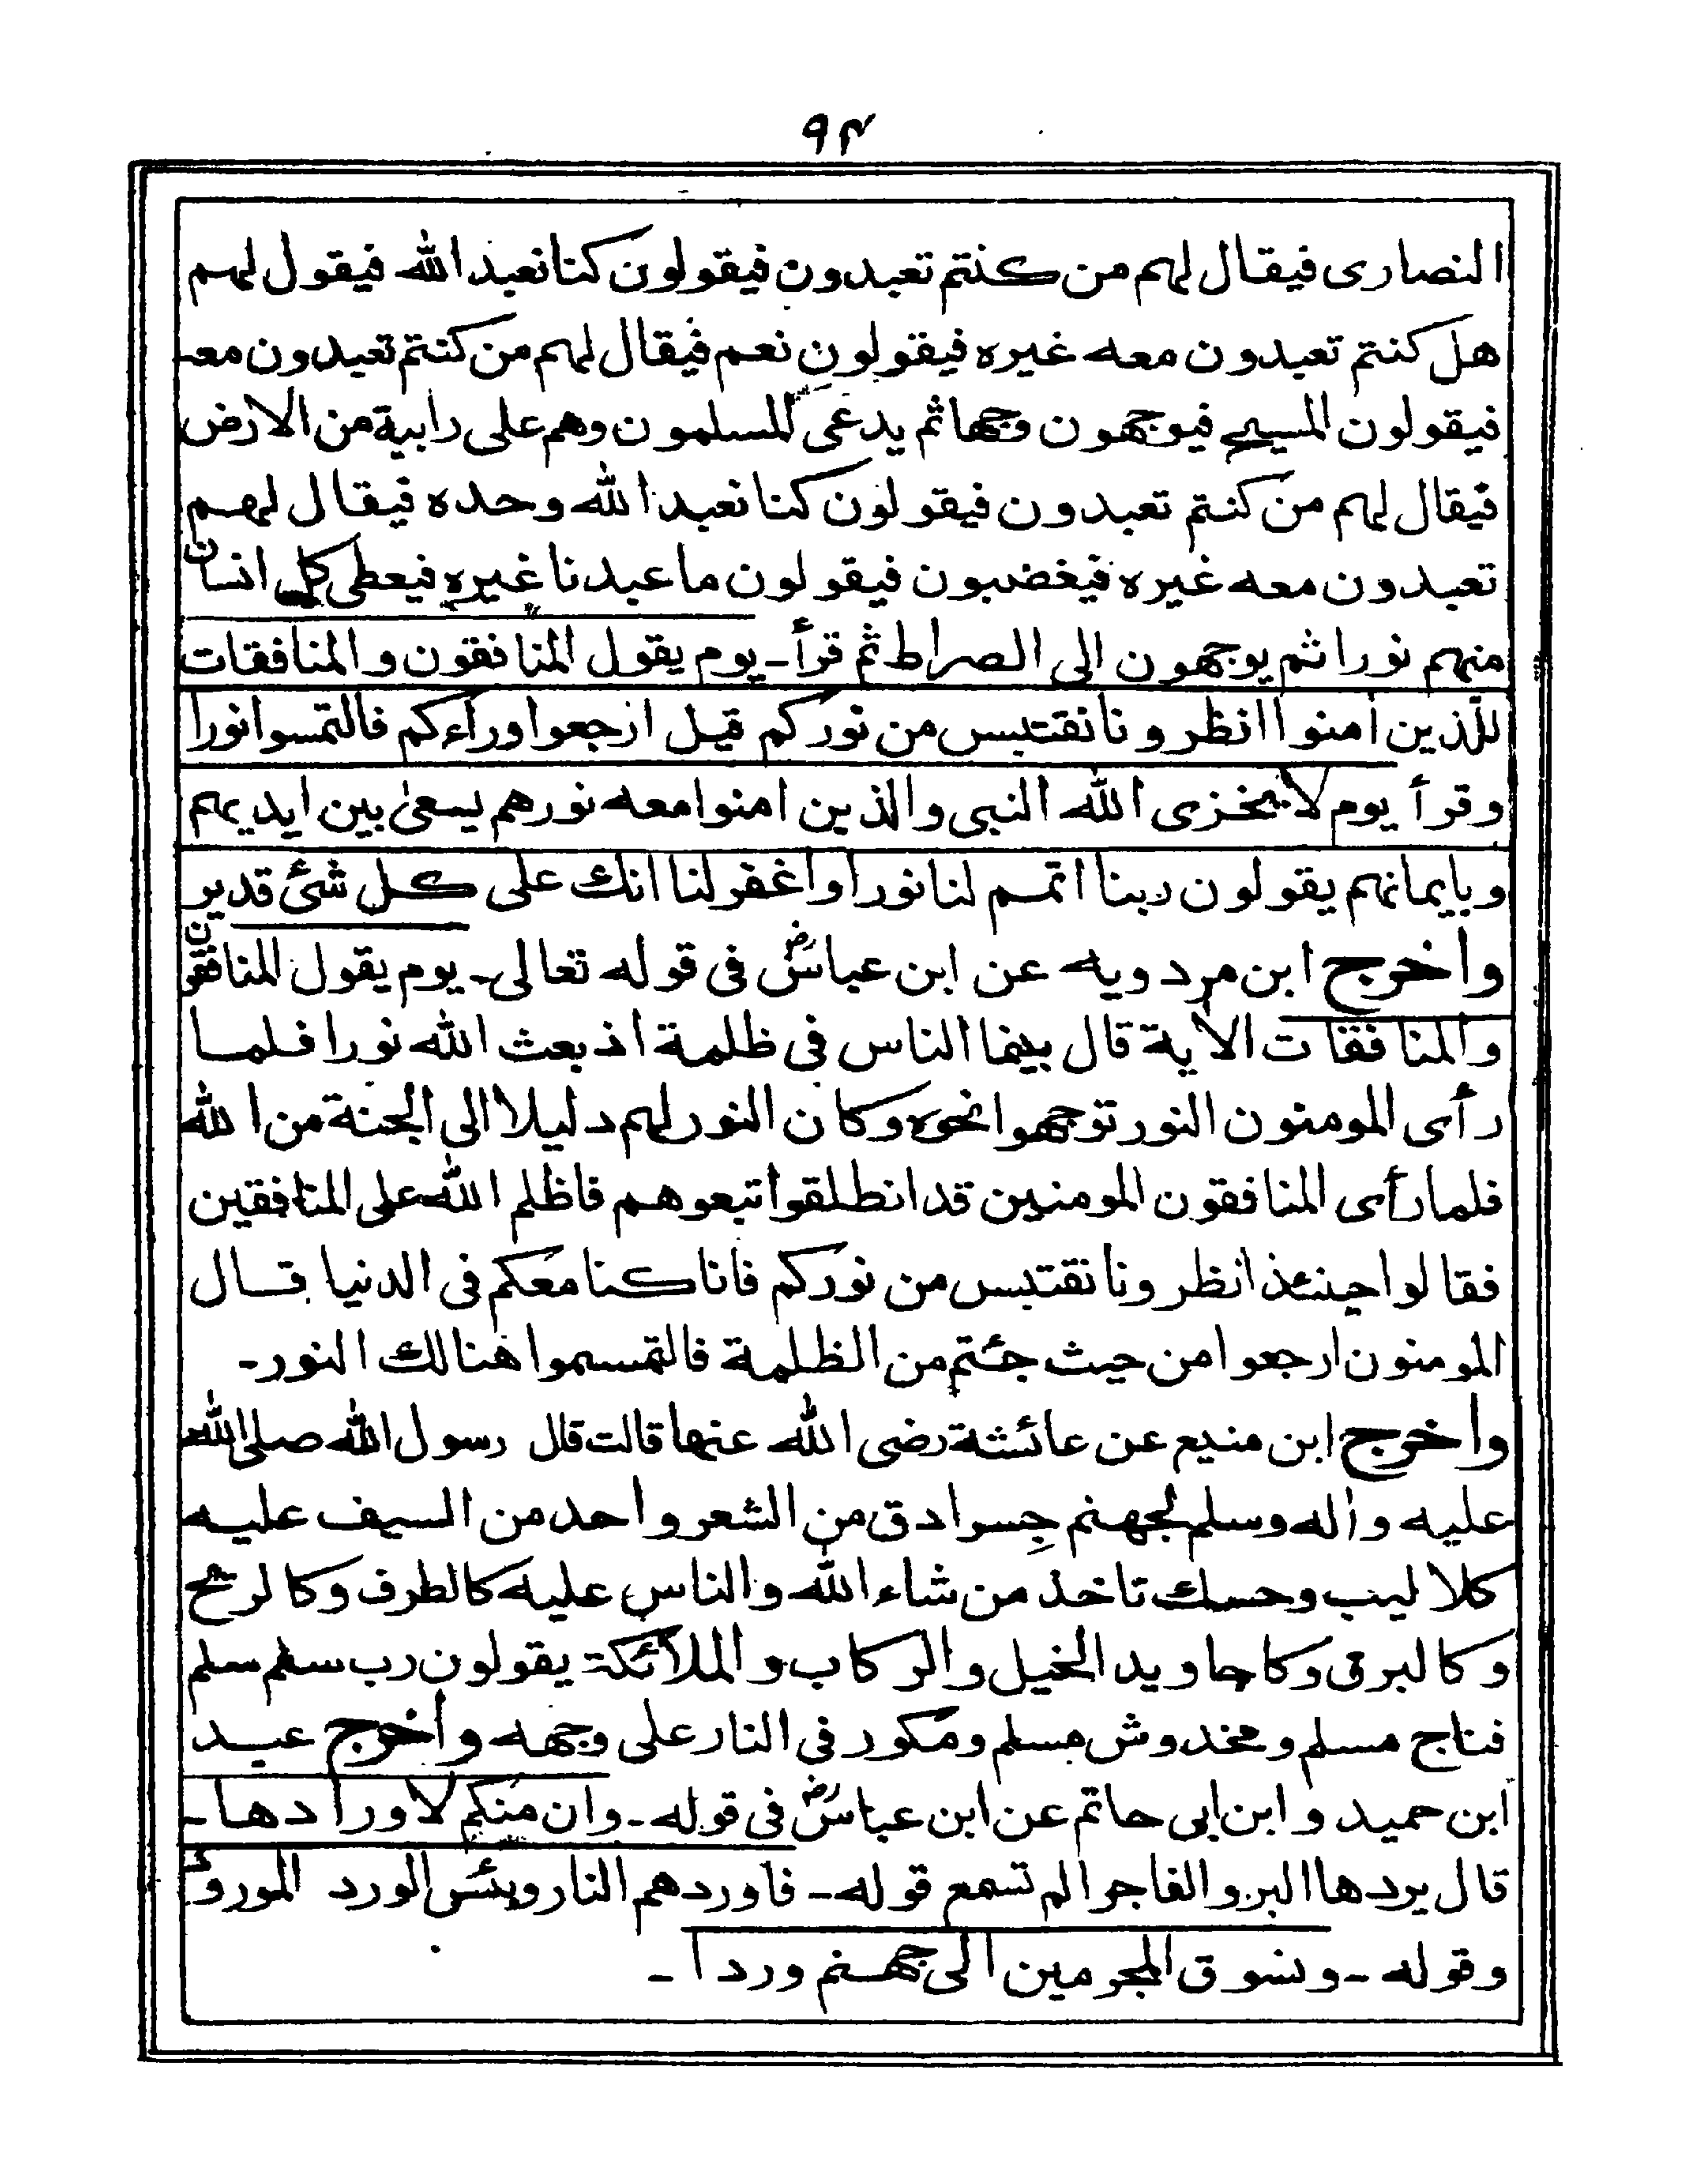 ۹۴
النصارى فيقال لهم من كنتم تعبدون فيقولون كنا نعبد الله فيقول لهم
هل كنتم تعبدون معه غيره فيقولون نعم فيقال لهم من كنتم تعبدون معه
فيقولون المسيح فيوجهون وجها ثم يدعى المسلمون وهم على رابية من الارض
فيقال لهم من كنتم تعبدون فيقولون كنا نعبد الله وحده فيقال لهم
تعبدون معه غيره فيغضبون فيقولون ما عبدنا غيره فيعطى كل انسان
منهم نورا ثم يوجهون الى الصراط ثم قرأ - يوم يقول المنافقون والمنافقات
للذين أمنوا انظرونا نقتبس من نوركم قيل ارجعوا وراءكم فالتمسوا نورا
وقرأ يوم لا يخزى الله النبى والذين امنوا معه نورهم يسعى بين ايديهم
وبايمانهم يقولون ربنا اتمم لنا نورا واغفر لنا انك على كل شئ قدير
واخرج ابن مردويه عن ابن عباسؓ فى قوله تعالى - يوم يقول المنافقون
والمنافقات الأية قال بينما الناس فى ظلمة اذ بعث الله نورا فلما
رأى المومنون النور توجهوا نحوه وكان النور لهم دليلا الى الجنة من الله
فلما رأى المنافقون المومنين قد انطلقوا تبعوهم فاظلم الله على المنافقين
فقالوا حينئذ انظرونا نقتبس من نوركم فانا كنا معكم فى الدنيا قال
المومنون ارجعوا من حيث جئتم من الظلمة فالتمسموا هنالك النور -
واخرج ابن منيع عن عائشة رضى الله عنها قالت قال رسول الله صلى الله
عليه واله وسلم لجهنم جِسر ادق من الشعر واحد من السيف عليه
كلاليب وحسك تاخذ من شاء الله والناس عليه كالطرف وكالريح
وكالبرق وكاجاويد الخيل والركاب والملائكة يقولون رب سلم سلم
فناج مسلم ومخدوش مسلم ومكور فى النار على وجهه واخرج عبد
ابن حميد وابن ابى حاتم عن ابن عباسؓ فى قوله - وان منكم لا واردها -
قال يردها البر والفاجر الم تسمع قوله - فاوردهم النار وبئس الورد المورود
وقوله - ونسوق المجرمين الى جهنم وردا -